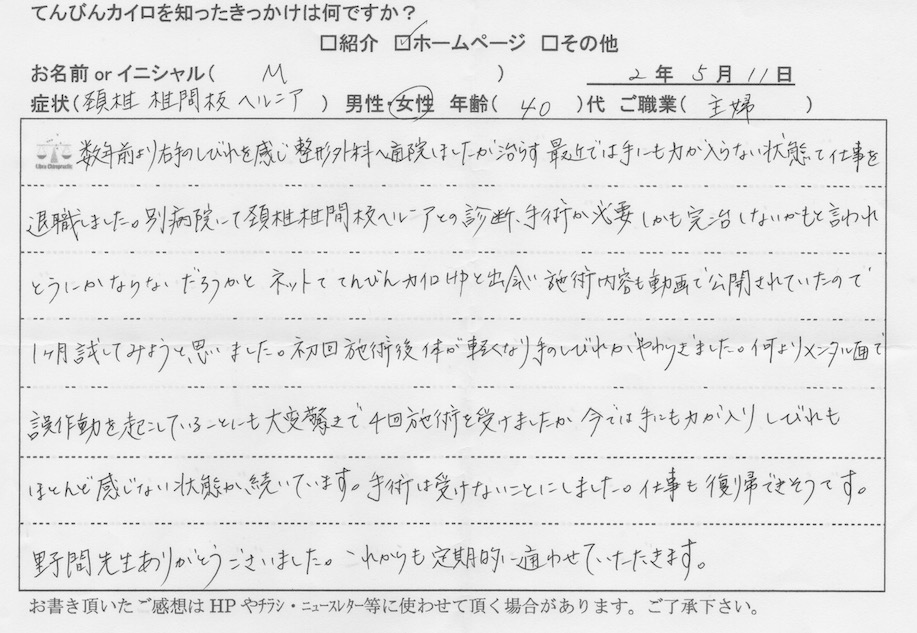 てんびんカイロを知ったきっかけは何ですか?
□紹介 ☑ホームページ □その他
お名前 or イニシャル( M ) 2 年 5 月 11 日
症状(頚椎 椎間板 ヘルニア ) 男性・女性 年齢( 40 )代 ご職業( 主婦 )
Libra Chiropractic
数年前より右手のしびれを感じ 整形外科へ通院しましたが治らず 最近では手にも力が入らない状態で仕事を
退職しました。別病院にて頚椎椎間板ヘルニアとの診断、手術が必要 しかも完治しないかもと言われ
どうにかならないだろうかと ネットで てんびんカイロHPと出会い 施術内容も動画で公開されていたので
1ヶ月試してみようと思いました。初回施術後体が軽くなり手のしびれがやわらぎました。何よりメンタル面で
誤作動を起こしていることにも大変驚きで4回施術を受けましたが 今では手にも力が入り しびれも
ほとんど感じない状態が続いています。手術は受けないことにしました。仕事も復帰できそうです。
野間先生ありがとうございました。これからも定期的に通わせていただきます。
お書き頂いたご感想は HP やチラシ・ニュースレター等に使わせて頂く場合があります。ご了承下さい。